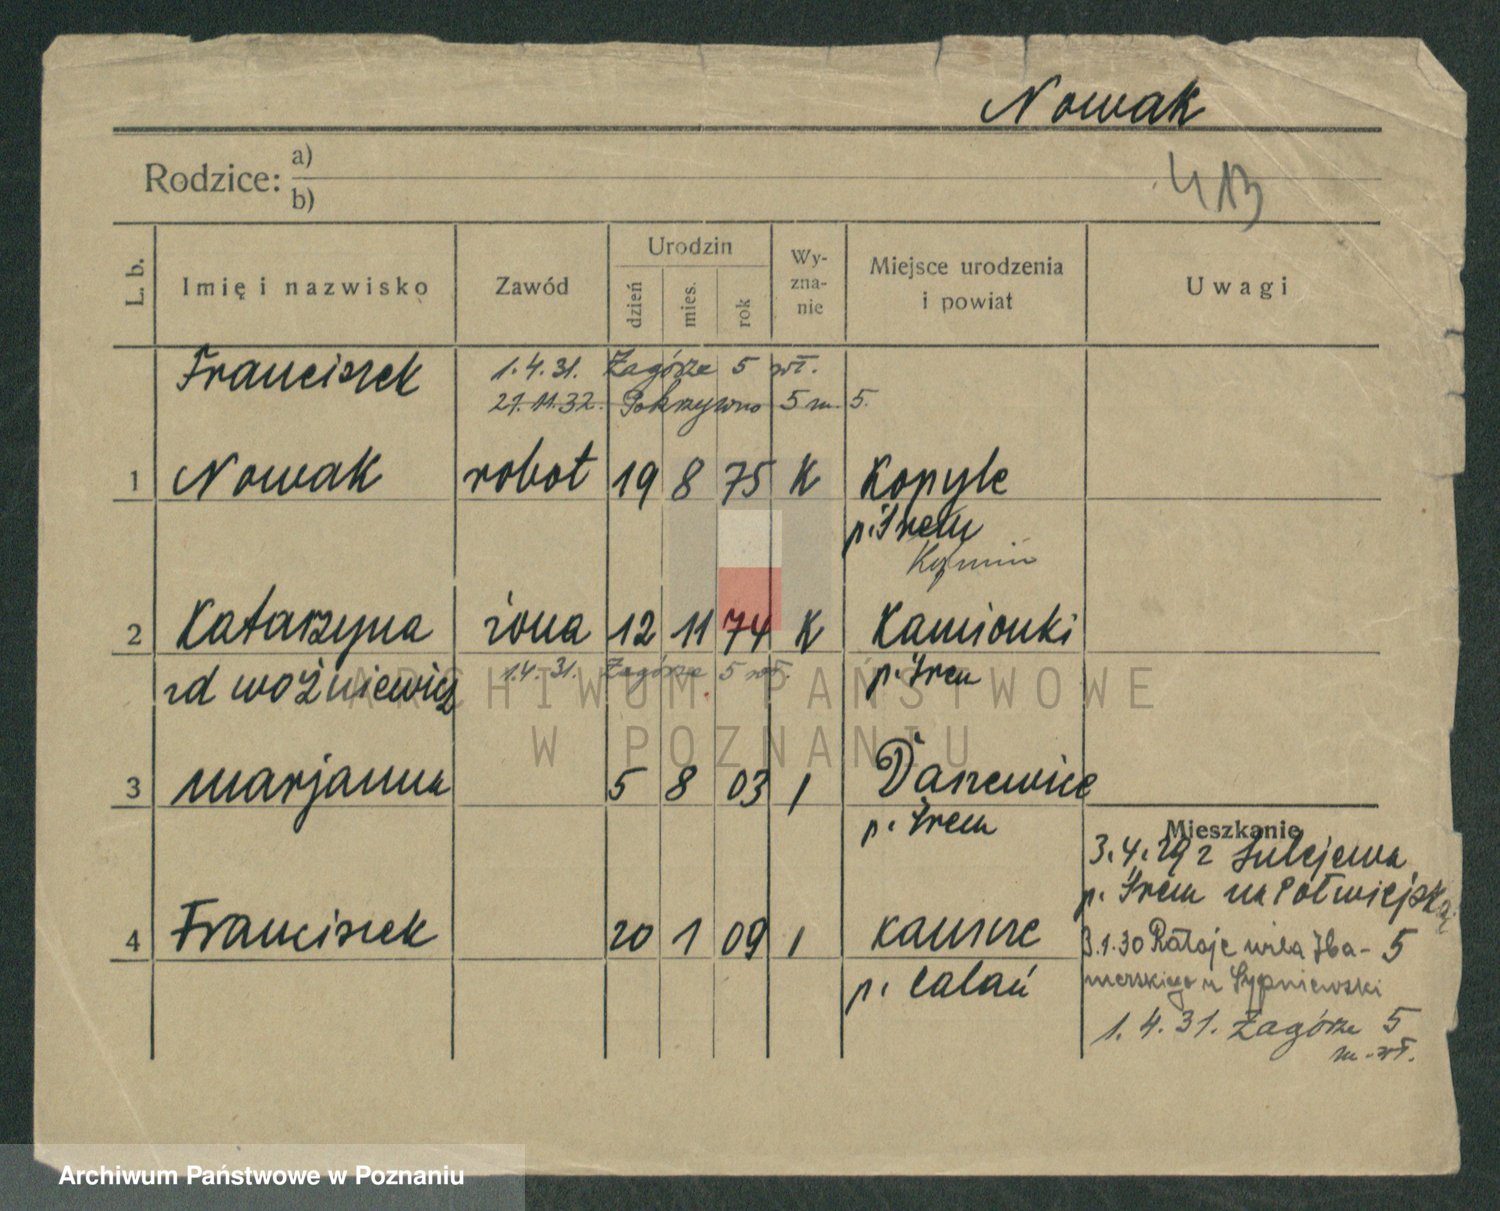 Nowak
413
Rodzice: a)
b)
L. b.
Imię i nazwisko
Zawód
Urodzin
dzień
mies.
rok
Wy-
zna-
nie
Miejsce urodzenia
i powiat
Uwagi
Franciszek 1.4.31. Zagórze 5 wł.
21.11.32. Pokrzywno 5 m. 5.
1 Nowak robot 19 8 75 K Kopyle
p. Śrem
2 Katarzyna żona 12 11 74 K Kamionki
zd woźniewicz 1.4.31. Zagórze 5 wł. p. Śrem
3 marjanna 5 8 03 1 Daszewice
p. Śrem
Mieszkanie
3.4.29 z
p. Śrem na Półwiejską
4 Franciszek 20 1 09 1
3.1.30 Rataje willa 5
p.
u Sypniewski
1.4.31. Zagórze 5
m. wł.
ARCHIWUM PAŃSTWOWE
W POZNANIU
Archiwum Państwowe w Poznaniu